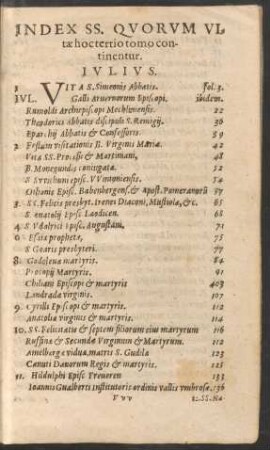 INDEX SS. QVORVM VI-
tæ hoc tertio tomo con-
tinentur.
IVLIVS.
1 VITA S. Simeonis Abbatis. Fol. 3.
IVL. Galli Aruernorum Episcopi. ibidem.
Rumoldi Archiepiscopi Mechliniensis. 22
Theodorici abbatis discipuli S. Remigij. 36
Eparchij Abbatis & Confessoris. 39
2 Festum visitationis B. Virginis Mariæ. 42
Vita SS. Processi & Martiniani, 48
B. Monegundis coniugata. 52
S. Svvithuni episc. VVintoniensis. 56
Othonis Episc. Babenbergens. & apost. Pomeranorũ 57
3. SS. Felicis presbyt. Irenei Diaconi, Mustiolæ, & c. 65
S. anatolij Episc Laodicen. 68
4 S. Vdalrici Episc. Augustani, 71
6 Esaiæ prophetæ, 75
S. Goaris presbyteri. 77
8. Godeleuæ martyris. 84
Procopij Martyris. 91
Chiliani Episcopi & martyris 403
Landradæ virginis. 107
9 Cyrilli Episcopi & martyris. 112
Anatoliæ virginis & martyris. 114
10. SS. Felicitatis & septem filiorum eius martyrum 116
Ruffinæ & Secundæ Virginum & Martyrum. 112
Amelbergæ viduæ, matris S. Gudilæ 123
Canuti Danorum Regis & martyris. 125
11. Hildulphi Episc Treueren 133
Ioannis Gualberti institutoris ordinis vallis vmbrosæ. 136
Vvv 12. SS. Na-